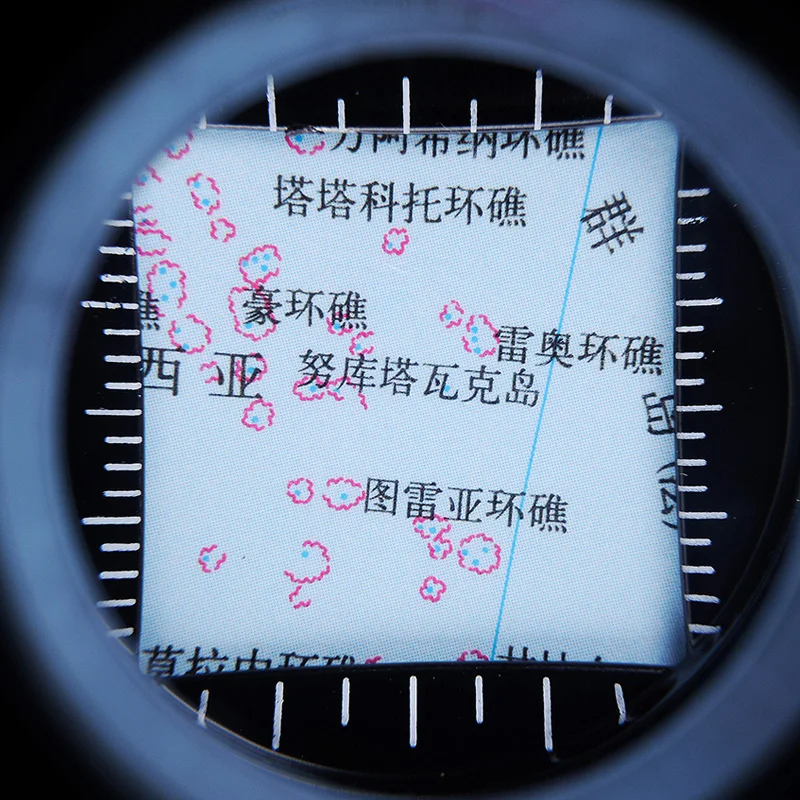 方阿希纳环礁
塔塔科托环礁
群
豪环礁
礁
雷奥环礁
西亚
努库塔瓦克岛
岛(法)
图雷亚环礁